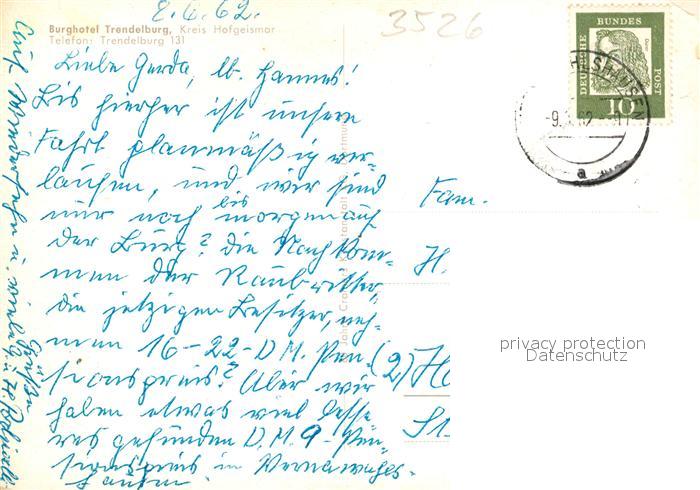 8.6.62.
3526
Burghotel Trendelburg, Kreis Hofgeismar
Telefon: Trendelburg 131
Liebe Gerda, lb. Hannes!
Bis hierher ist unsere
Fahrt planmäßig ver-
laufen, und wir sind
nur noch bis morgen auf
der Burg? die Nachkom-
men der Raubritter,
die jetzigen Besitzer, neh-
men 16-22-D.M. Pen-
sionspreis? Aber wir
haben etwas viel besse
res gefunden D.M. 9-Pen-
sionspreis in Wernswigs-
hausen.
Auf Wiedersehn u. viele
Grüße
(2)
Fam.
H.
St.
DEUTSCHE
BUNDES
POST
10
privacy protection
Datenschutz